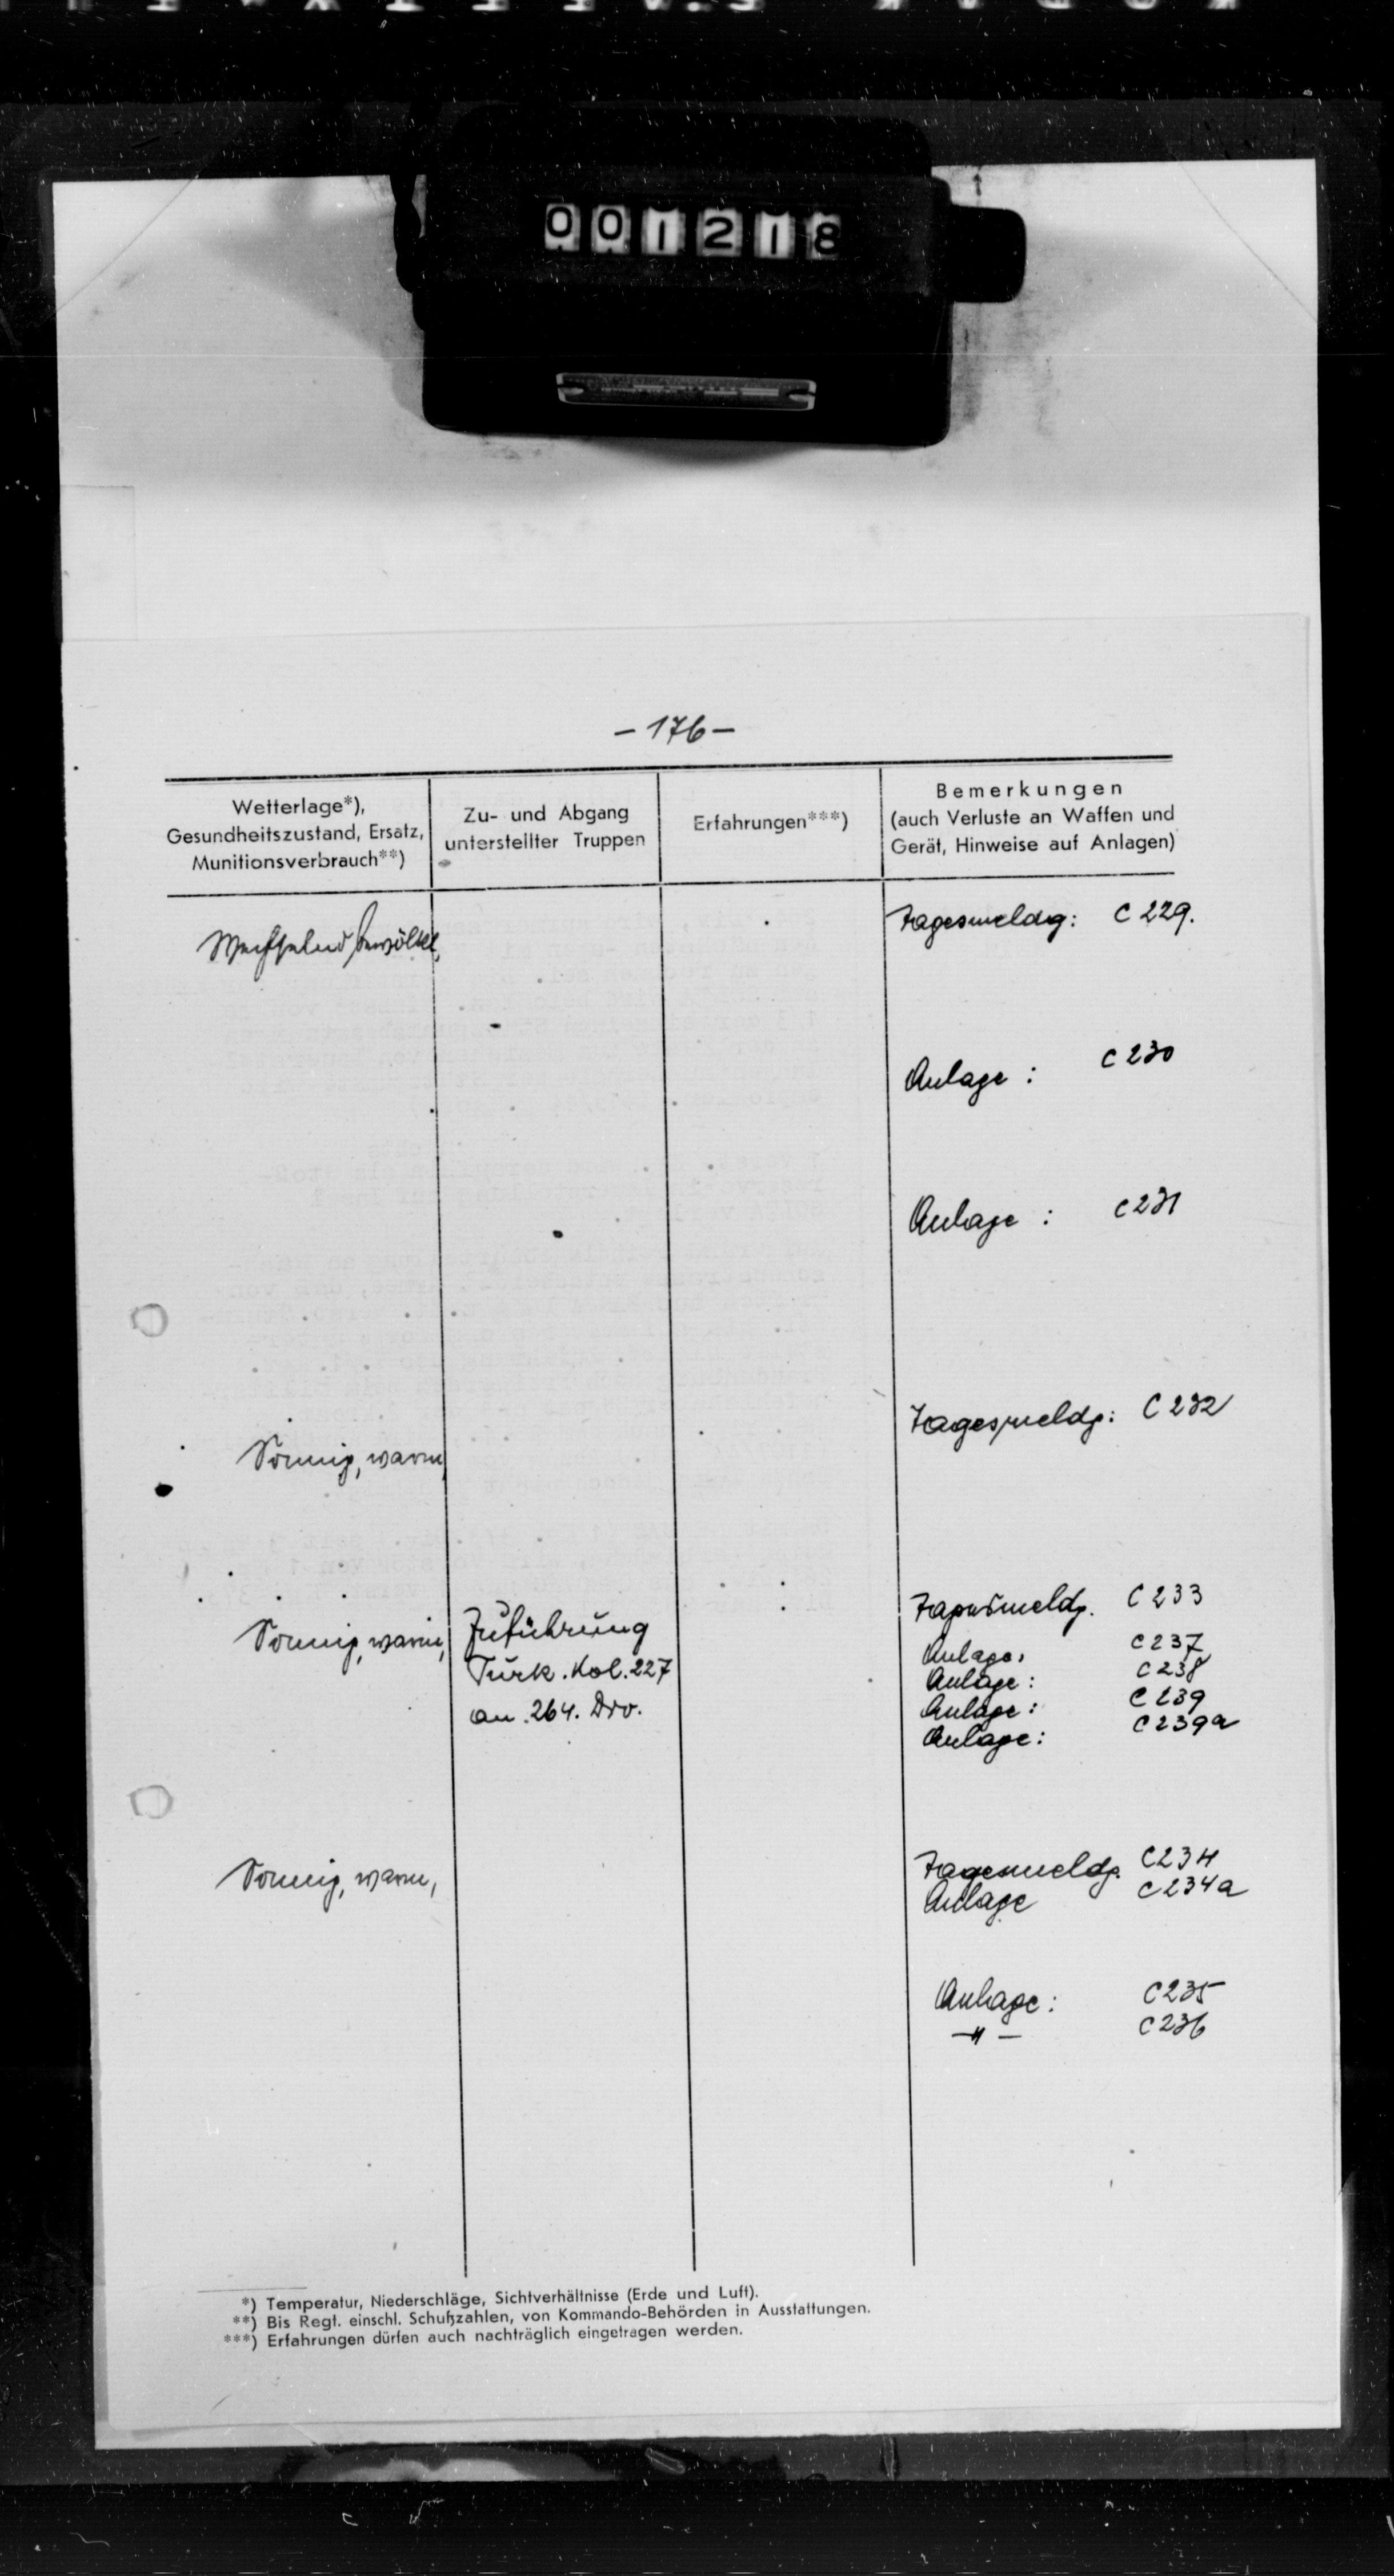 001218
- 176 -
Wetterlage*),
Gesundheitszustand, Ersatz,
Munitionsverbrauch**)
Zu- und Abgang
unterstellter Truppen
Erfahrungen***)
Bemerkungen
(auch Verluste an Waffen und
Gerät, Hinweise auf Anlagen)
Wechselnd bewölkt,
Tagesmeldg: C 229.
Anlage : C 230
Anlage : C 231
Sonnig, warm,
Tagesmeldg: C 232
Sonnig, warm,
Zuführung
Turk. Kol. 227
an 264. Div.
Tagesmeldg. C 233
Anlage: C 237
Anlage: C 238
Anlage: C 239
Anlage: C 239a
Sonnig, warm,
Tagesmeldg. C 234
Anlage C 234a
Anlage: C 235
-"- C 236
*) Temperatur, Niederschläge, Sichtverhältnisse (Erde und Luft).
**) Bis Regt. einschl. Schußzahlen, von Kommando-Behörden in Ausstattungen.
***) Erfahrungen dürfen auch nachträglich eingetragen werden.